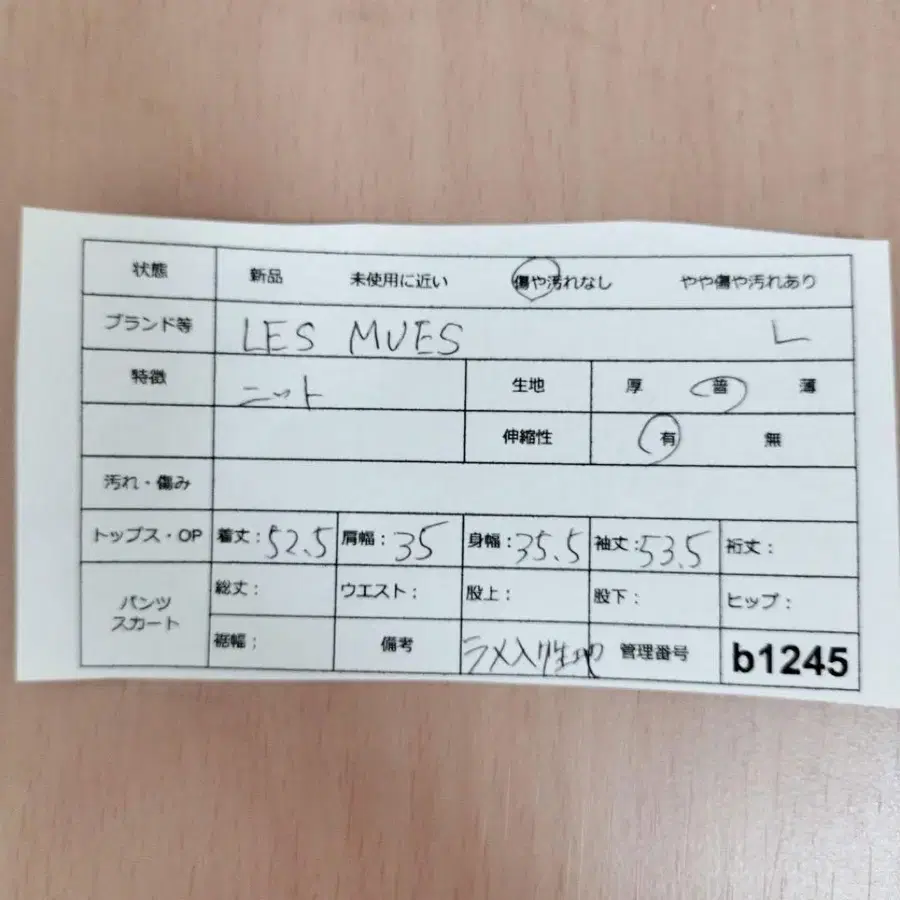 状態 新品 未使用に近い 傷や汚れなし やや傷や汚れあり
ブランド等 LES MUES L
特徴 ニット 生地 厚 普 薄
伸縮性 有 無
汚れ・傷み
トップス・OP 着丈：52.5 肩幅：35 身幅：35.5 袖丈：53.5 裄丈：
パンツ スカート 総丈： ウエスト： 股上： 股下： ヒップ：
裾幅； 備考 ラメ入り生地 管理番号 b1245